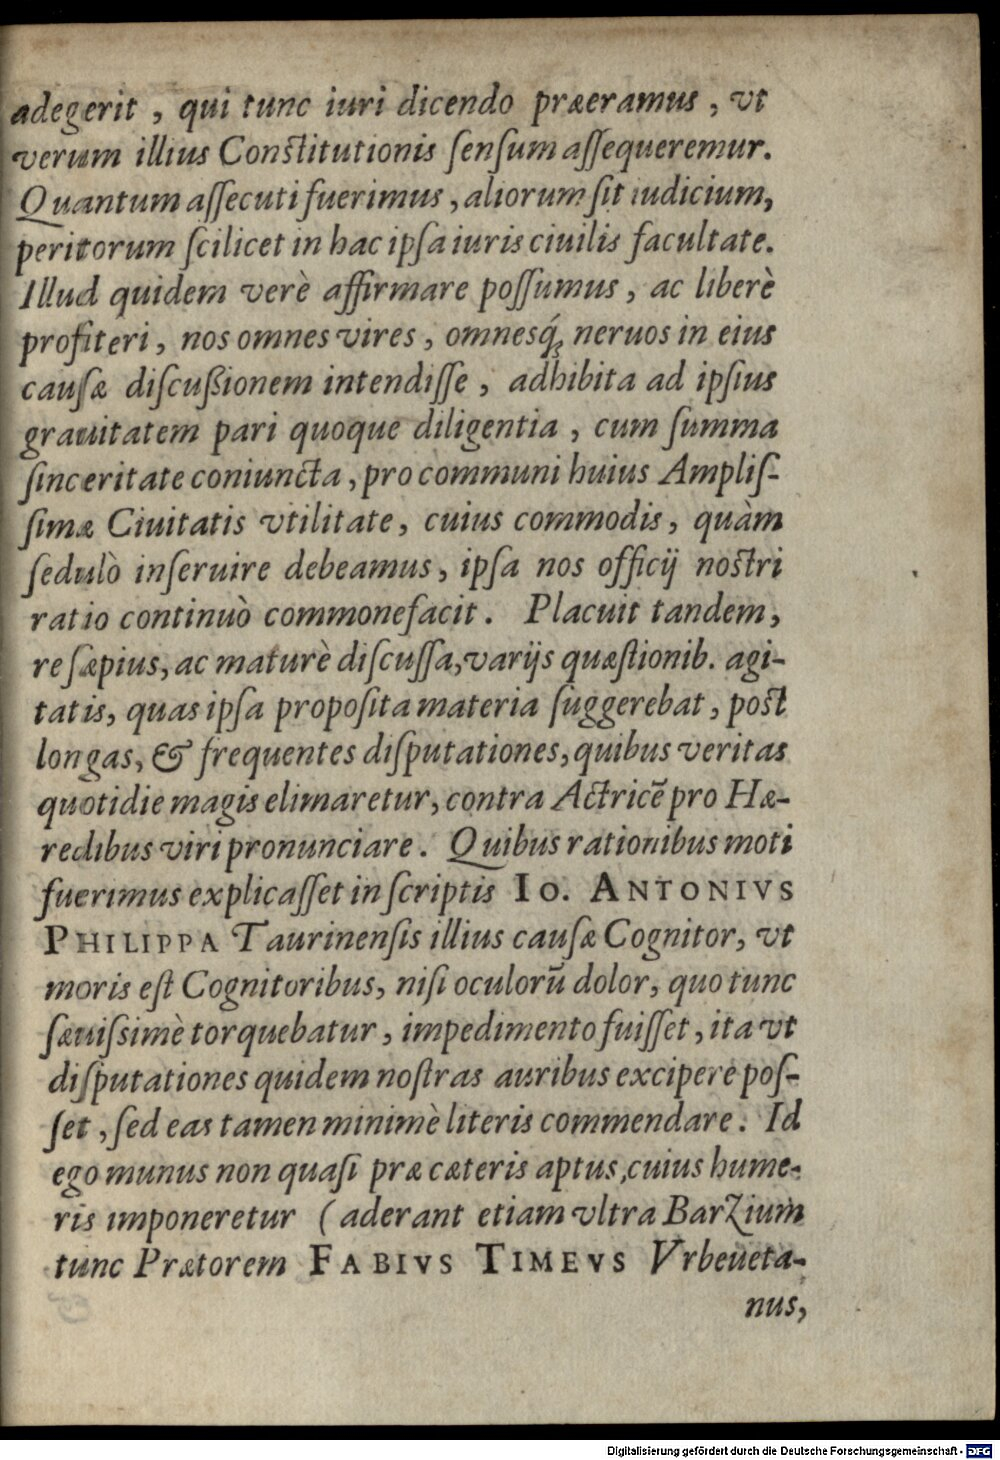 adegerit , qui tunc iuri dicendo præeramus , vt
verum illius Conſtitutionis ſenſum aſſequeremur.
Quantum aſſecuti fuerimus , aliorum ſit iudicium,
peritorum ſcilicet in hac ipſa iuris ciuilis facultate.
Illud quidem verè affirmare poſſumus , ac liberè
profiteri , nos omnes vires , omnesq́ꝫ neruos in eius
cauſæ diſcußionem intendiſſe , adhibita ad ipſius
grauitatem pari quoque diligentia , cum ſumma
ſinceritate coniuncta , pro communi huius Ampliſ-
ſimæ Ciuitatis vtilitate , cuius commodis , quàm
ſedulò inſeruire debeamus , ipſa nos officij noſtri
ratio continuò commonefacit . Placuit tandem,
re ſæpius, ac maturè diſcuſſa, varijs quæſtionib. agi-
tatis, quas ipſa propoſita materia ſuggerebat , poſt
longas, & frequentes diſputationes, quibus veritas
quotidie magis elimaretur, contra Actricẽ pro Hæ-
redibus viri pronunciare . Quibus rationibus moti
fuerimus explicaſſet in ſcriptis IO. ANTONIVS
PHILIPPA Taurinenſis illius cauſæ Cognitor, vt
moris eſt Cognitoribus, niſi oculorũ dolor, quo tunc
ſæuiſsimè torquebatur , impedimento fuiſſet , ita vt
diſputationes quidem noſtras auribus excipere poſ-
ſet , ſed eas tamen minimè literis commendare . Id
ego munus non quaſi præ cæteris aptus, cuius hume-
ris imponeretur ( aderant etiam vltra Barzium
tunc Prætorem FABIVS TIMEVS Vrbeueta-
nus,
Digitalisierung gefördert durch die Deutsche Forschungsgemeinschaft - DFG